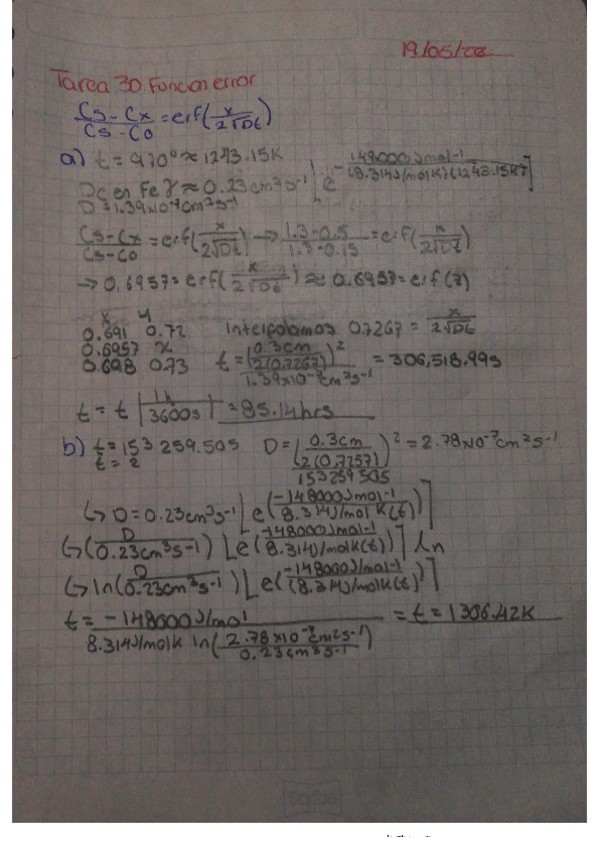 19/05/22
Tarea 30. Funcion error
Cs-Cx/Cs-Co = erf(x/2√Dt)
a) t = 970° ≈ 1243.15K
Dc en Fe γ ≈ 0.23cm²s⁻¹ [e^-148000Jmol-1/(8.314J/molK)(1243.15K)]
D = 1.39x10⁻⁷cm²s⁻¹
Cs-Cx/Cs-Co = erf(x/2√Dt) → 1.3-0.5/1.3-0.15 = erf(x/2√Dt)
→ 0.6957 = erf(x/2√Dt) ≈ 0.6957 = erf(z)
x y
0.691 0.72 Interpolamos 0.7267 = x/2√Dt
0.6957 x
0.698 0.73 t = (0.3cm/2(0.7267))²/1.39x10⁻⁷cm²s⁻¹ = 306,518.99s
t = t | 1h/3600s | = 85.14hrs
b) t = 153259.505 D = (0.3cm/2(0.7257))²/153259505 = 2.78x10⁻⁷cm²s⁻¹
t = 2
↳ D = 0.23cm³s⁻¹ [e(-148000Jmol-1/8.314J/molK(t))]
↳ (D/0.23cm³s⁻¹) [e(-148000Jmol-1/8.314J/molK(t))] ln
↳ ln(D/0.23cm³s⁻¹) [e(-148000J/mol-1/(8.314J/molK(t))]
t = -148000J/mol/8.314J/molK ln(2.78x10⁻⁷cm²s⁻¹/0.23cm³s⁻¹) = t = 1306.42K